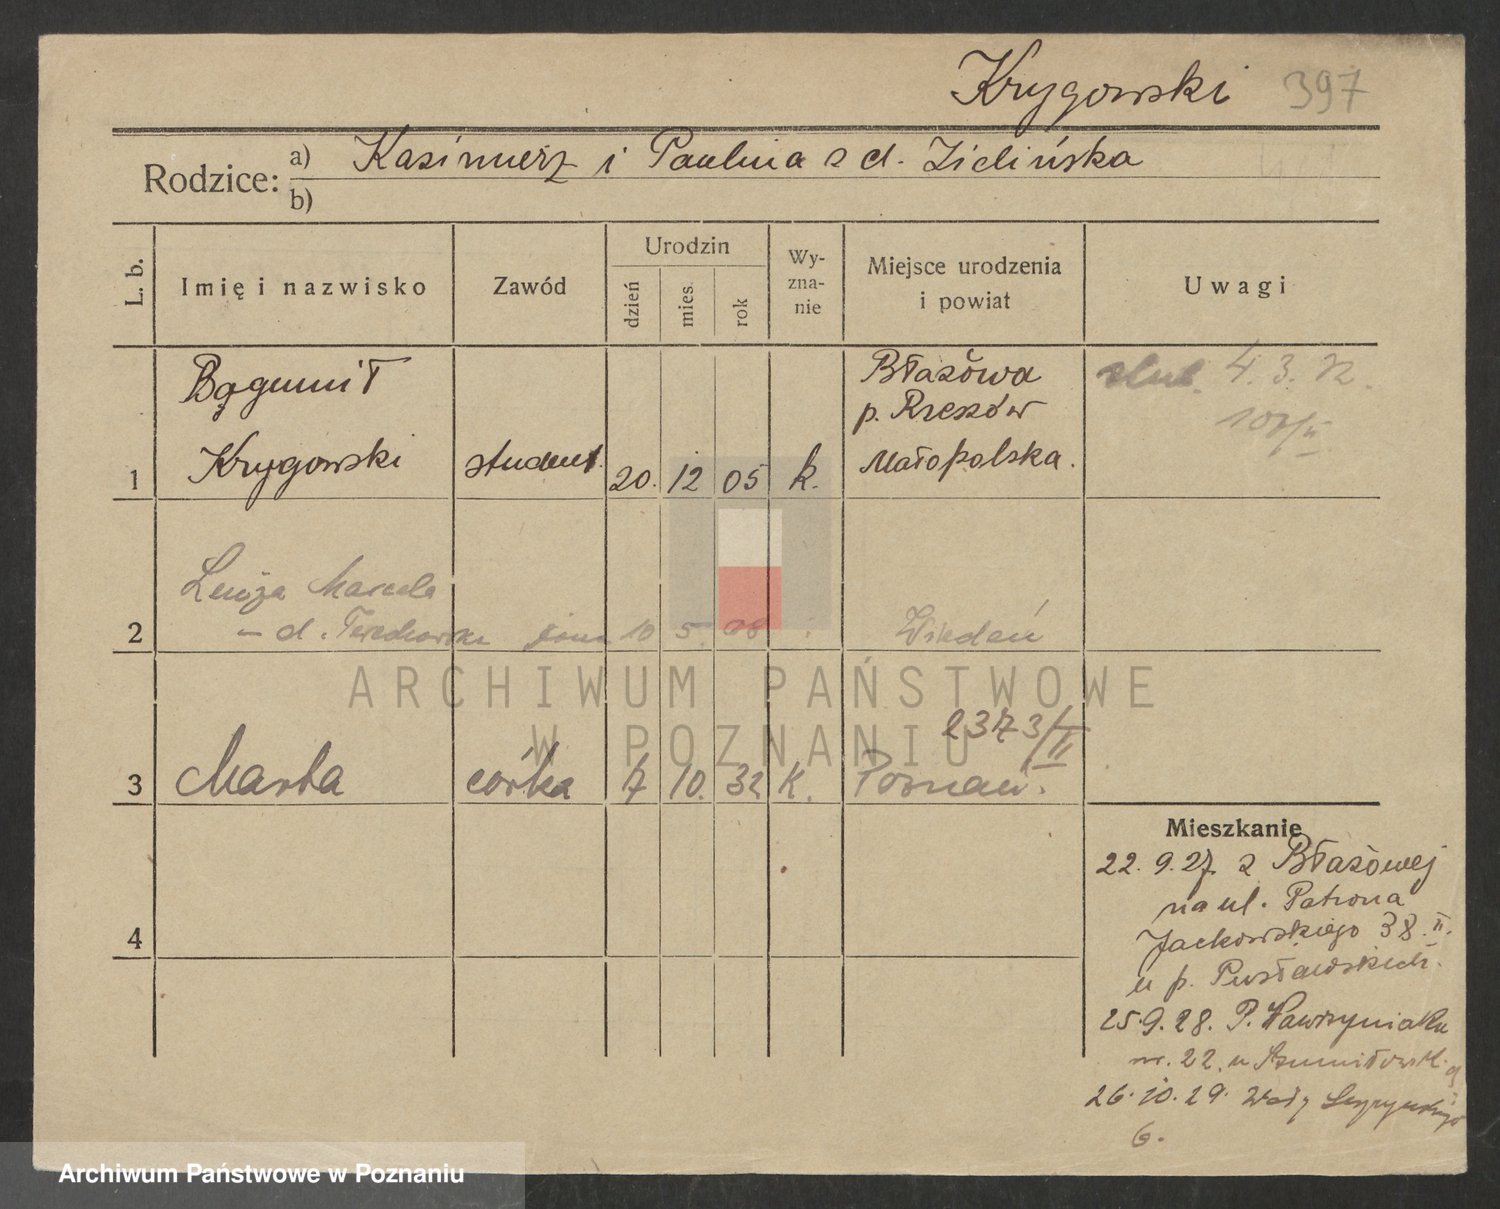 Krygowski 397
Rodzice: a) Kazimierz i Paulina z d. Zielińska
b)
L. b.
Imię i nazwisko
Zawód
Urodzin
dzień
mies.
rok
Wy-
zna-
nie
Miejsce urodzenia
i powiat
Uwagi
Bogumił
Krygowski
1
student
20. 12 05
k.
Błażowa
p. Rzeszów
Małopolska.
ślub. 4. 3. 32.
2
żona 10 5. 08
Wiedeń
2373/II
3 Marta córka 7 10. 32 K. Poznań.
4
Mieszkanie
22. 9. 27. z Błażowej
na ul. Patrona
Jackowskiego 38. II.
u p.
25. 9. 28. P. Wawrzyniaka
nr. 22. u
26. 10. 29. Wały
6.
ARCHIWUM PAŃSTWOWE
W POZNANIU
Archiwum Państwowe w Poznaniu